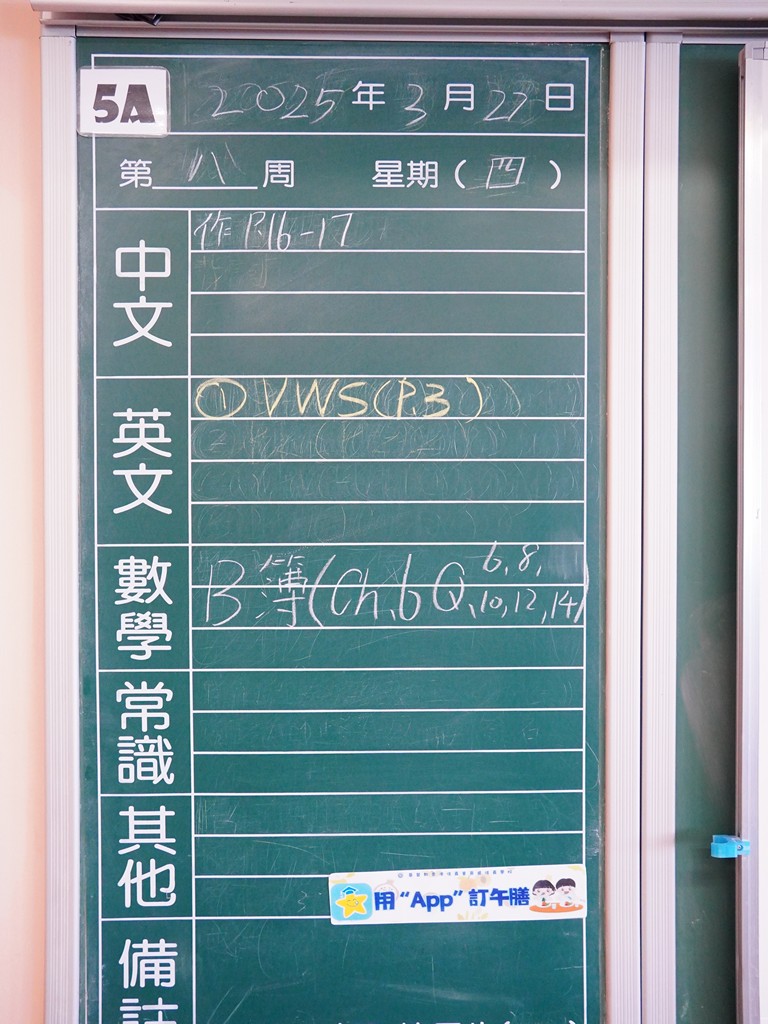 5A
2025年3月27日
第八周 星期（四）
中文
作 P.16-17
英文
① VWS(P.3)
數學
B簿(Ch.6 Q.6,8,
10,12,14)
常識
其他
用“App”訂午膳
備註